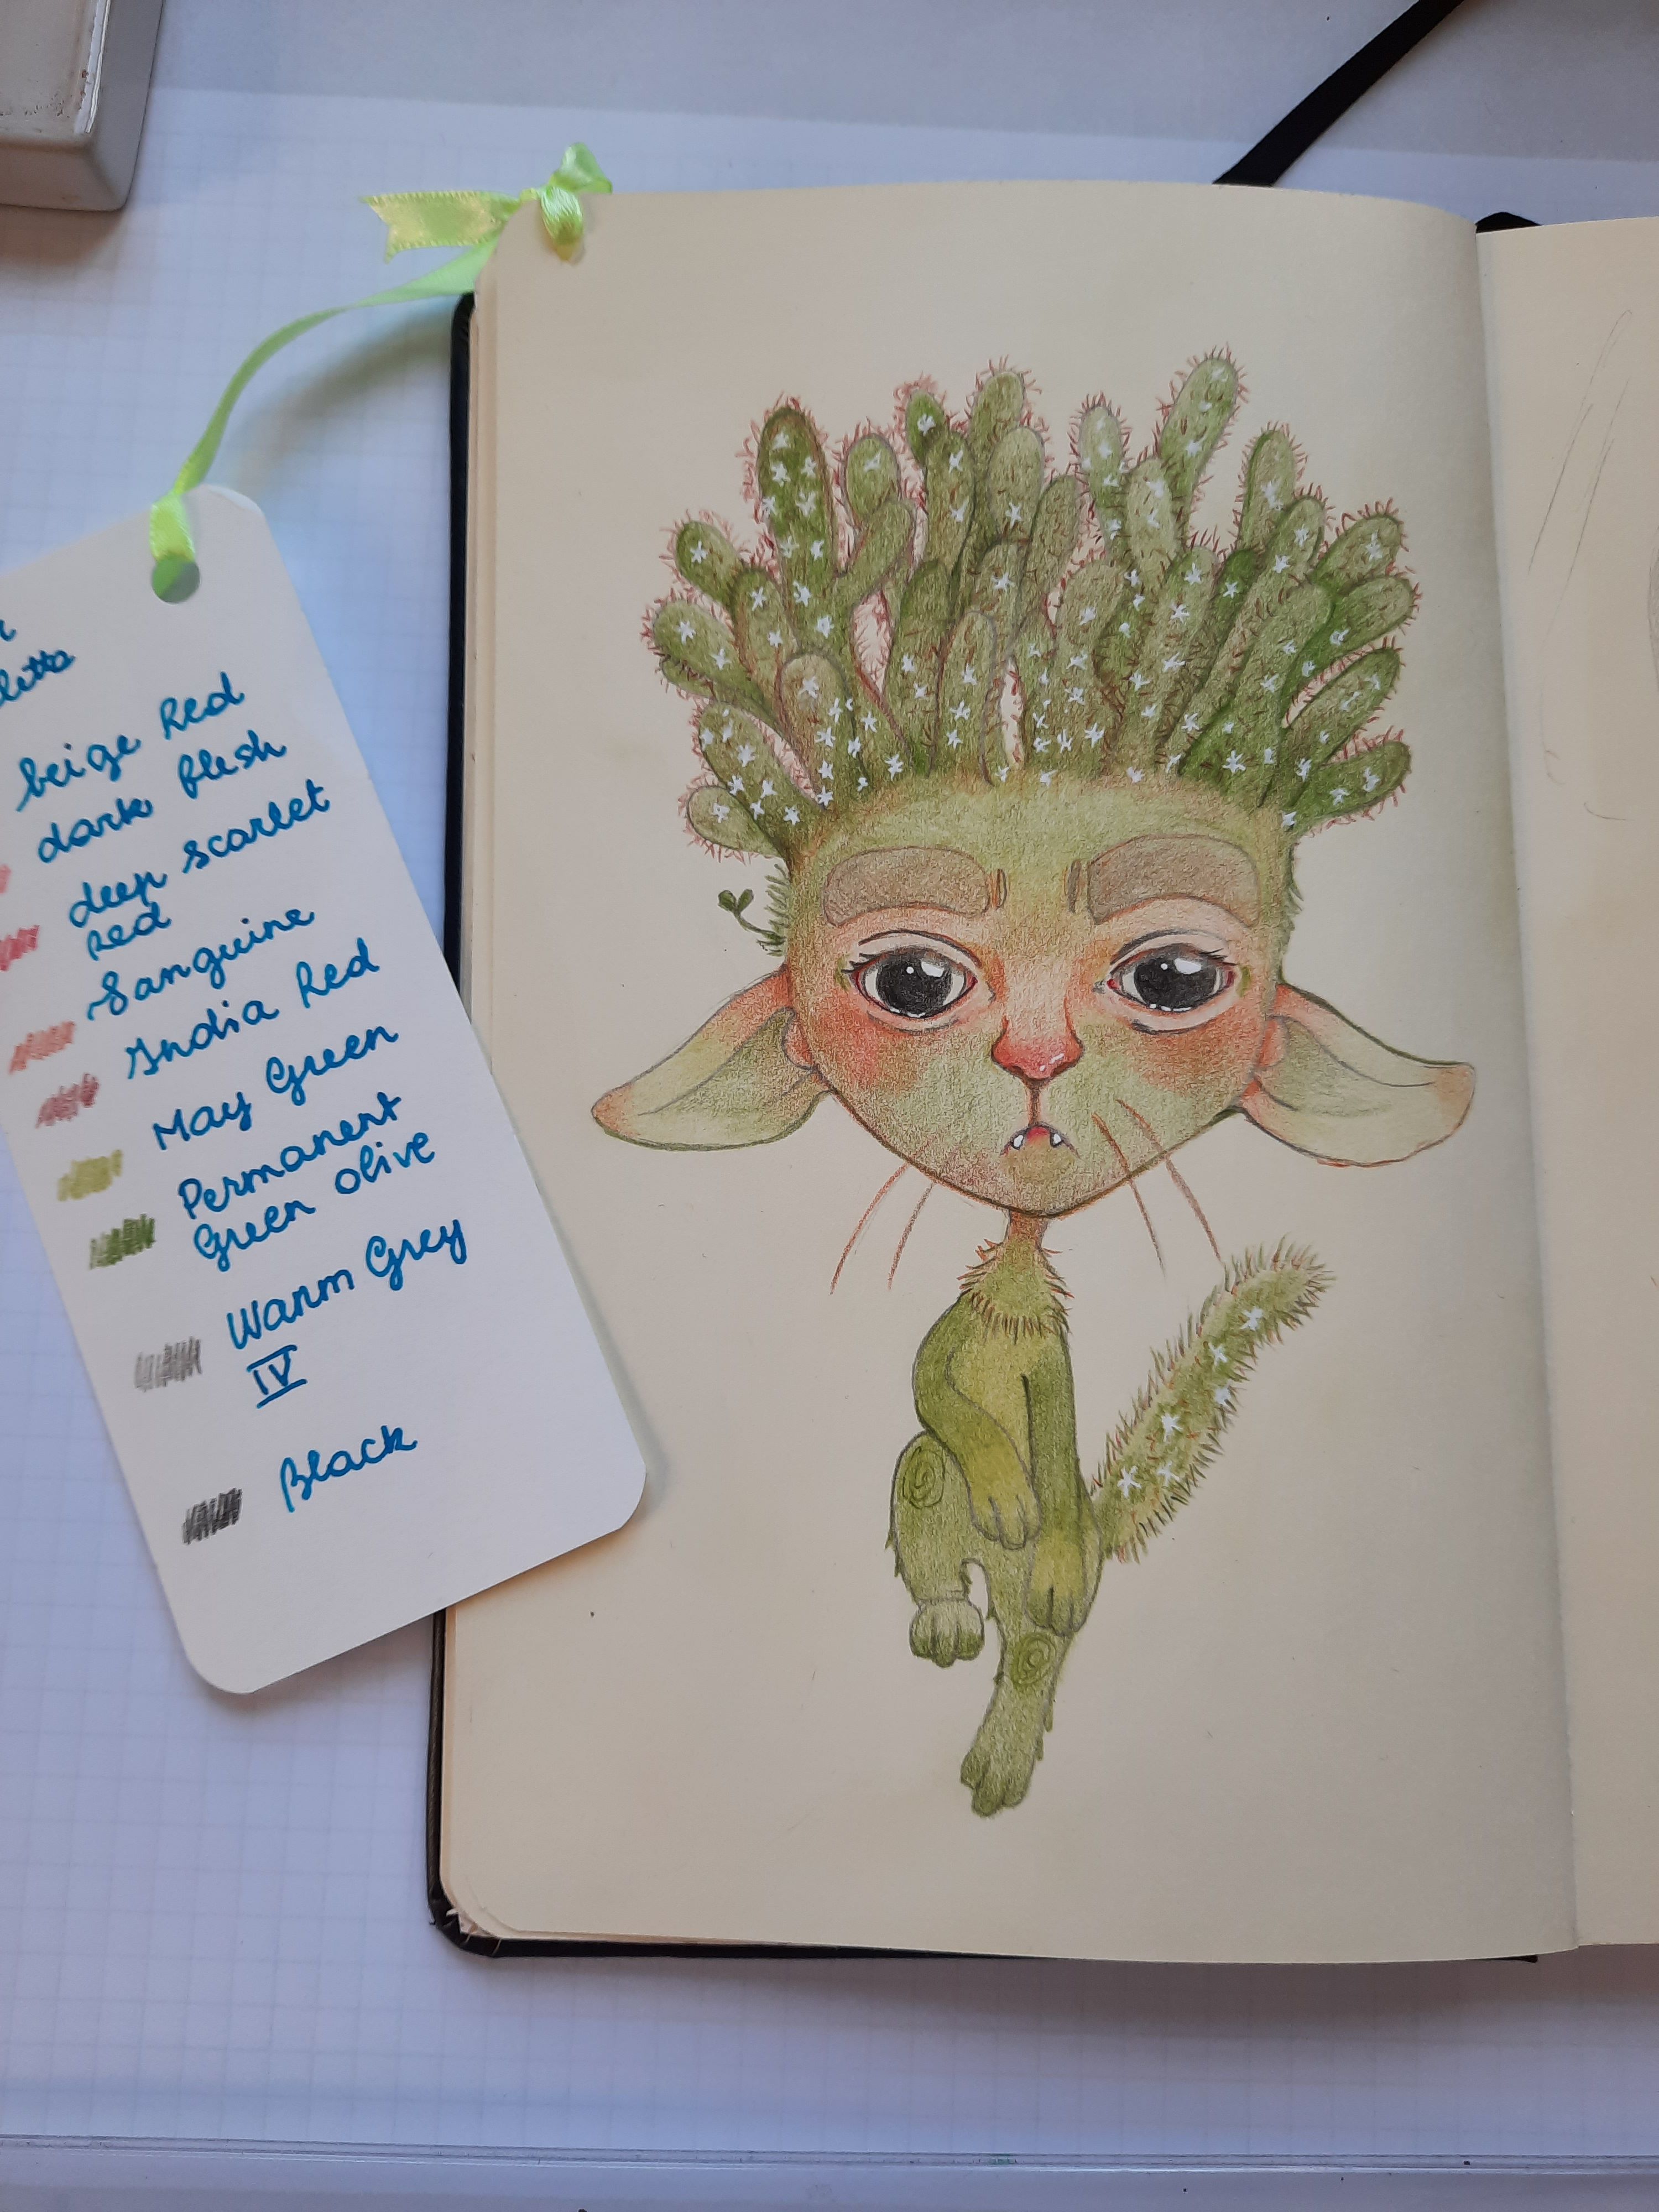 beige Red
dark flesh
deep scarlet
Red
Sanguine
India Red
May Green
Permanent
Green olive
Warm Grey
IV
Black